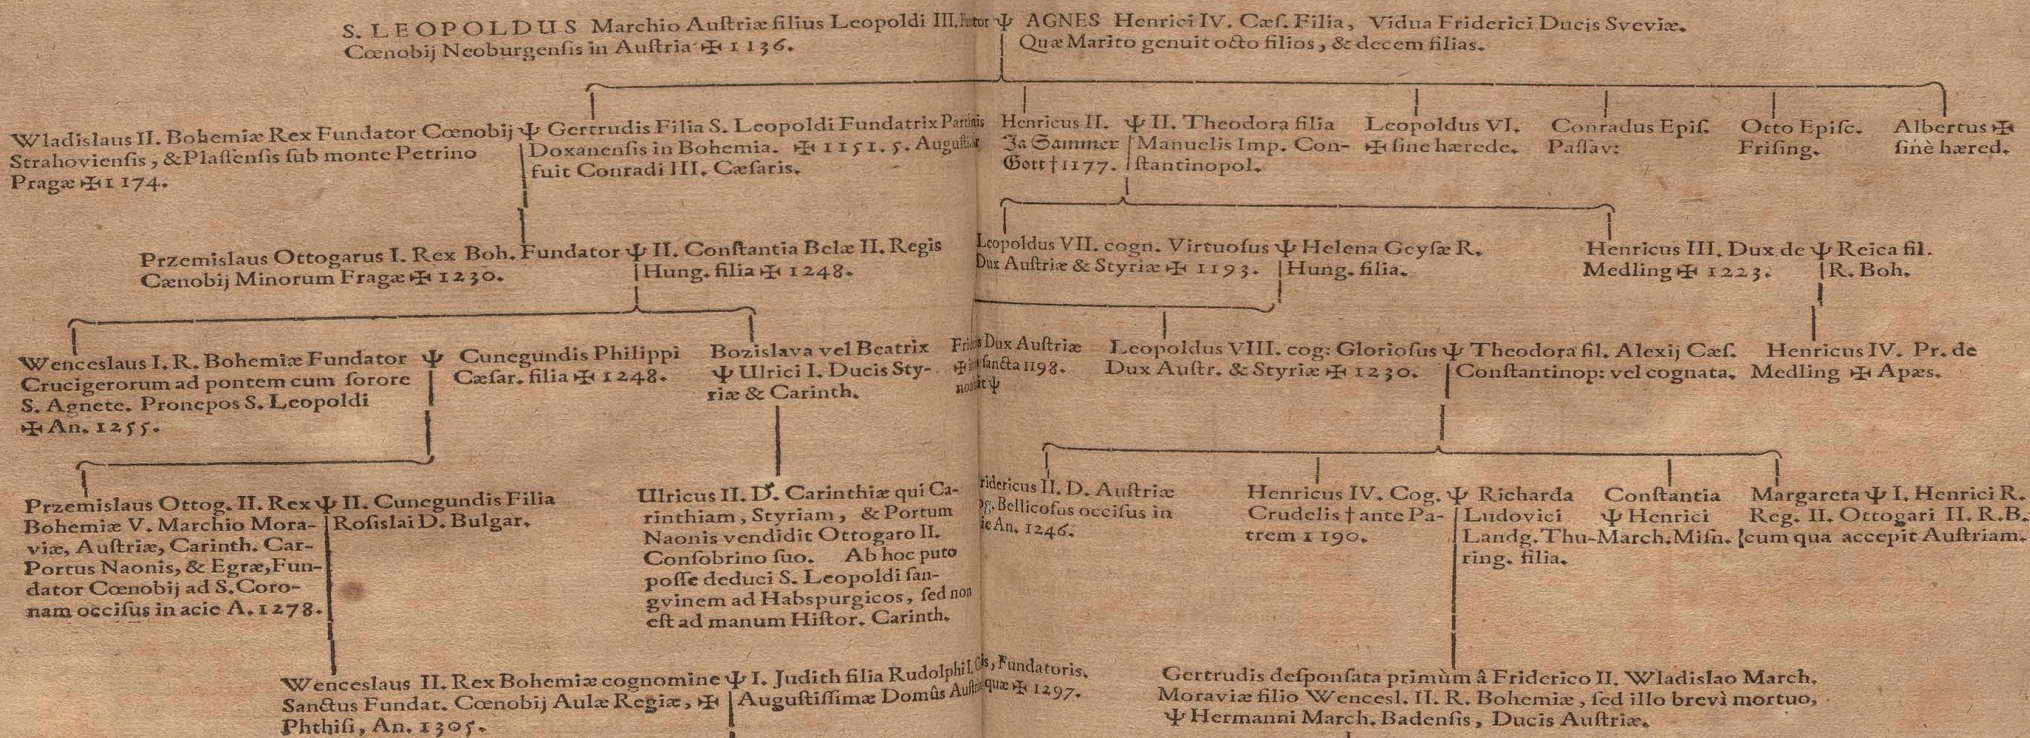 S. LEOPOLDUS Marchio Auſtriæ filius Leopoldi III. Ψ AGNES Henrici IV. Cæſ. Filia, Vidua Friderici Ducis Sveviæ.
Cœnobij Neoburgenſis in Auſtria ✠ 1136.
Quæ Marito genuit octo filios, & decem filias.
Wladislaus II. Bohemiæ Rex Fundator Cœnobij Ψ
Strahovienſis, & Plaſſenſis ſub monte Petrino
Pragæ ✠ 1174.
Gertrudis Filia S. Leopoldi Fundatrix
Doxanenſis in Bohemia. ✠ 1151. 5. Auguſti
fuit Conradi III. Cæſaris.
Henricus II. Ψ
Ja Sammer
Gott † 1177.
II. Theodora filia
Manuelis Imp. Con-
ſtantinopol.
Leopoldus VI.
✠ ſine hærede.
Conradus Epiſ.
Paſſav:
Otto Epiſc.
Friſing.
Albertus ✠
ſinè hæred.
Przemislaus Ottogarus I. Rex Boh. Fundator Ψ
Cænobij Minorum Fragæ ✠ 1230.
II. Conſtantia Belæ II. Regis
Hung. filia ✠ 1248.
Leopoldus VII. cogn. Virtuoſus Ψ
Dux Auſtriæ & Styriæ ✠ 1193.
Helena Geyſæ R.
Hung. filia.
Henricus III. Dux de Ψ
Medling ✠ 1223.
Reica fil.
R. Boh.
Wenceslaus I. R. Bohemiæ Fundator Ψ
Crucigerorum ad pontem cum ſorore
S. Agnete. Pronepos S. Leopoldi
✠ An. 1255.
Cunegundis Philippi
Cæſar. filia ✠ 1248.
Bozislava vel Beatrix
Ψ Ulrici I. Ducis Sty-
riæ & Carinth.
Dux Auſtriæ
ſancta 1198.
Ψ
Leopoldus VIII. cog: Glorioſus Ψ
Dux Auſtr. & Styriæ ✠ 1230.
Theodora fil. Alexij Cæſ.
Conſtantinop: vel cognata.
Henricus IV. Pr. de
Medling ✠ Apæs.
Przemislaus Ottog. II. Rex Ψ
Bohemiæ V. Marchio Mora-
viæ, Auſtriæ, Carinth. Car-
Portus Naonis, & Egræ, Fun-
dator Cœnobij ad S. Coro-
nam occiſus in acie A. 1278.
II. Cunegundis Filia
Roſislai D. Bulgar.
Ulricus II. D. Carinthiæ qui Ca-
rinthiam, Styriam, & Portum
Naonis vendidit Ottogaro II.
Conſobrino ſuo. Ab hoc puto
poſſe deduci S. Leopoldi ſan-
gvinem ad Habspurgicos, ſed non
eſt ad manum Hiſtor. Carinth.
ridericus II. D. Auſtriæ
Bellicoſus occiſus in
ie An. 1246.
Henricus IV. Cog. Ψ
Crudelis † ante Pa-
trem 1190.
Richarda
Ludovici
Landg. Thu-
ring. filia.
Conſtantia
Ψ Henrici
March. Miſn.
Margareta Ψ I. Henrici R.
Reg. II. Ottogari II. R. B.
cum qua accepit Auſtriam.
Wenceslaus II. Rex Bohemiæ cognomine Ψ
Sanctus Fundat. Cœnobij Aulæ Regiæ, ✠
Phthiſi, An. 1305.
I. Judith filia Rudolphi I. Fundatoris,
Auguſtiſſimæ Domûs quæ ✠ 1297.
Gertrudis deſponſata primùm â Friderico II. Wladislao March.
Moraviæ filio Wencesl. II. R. Bohemiæ, ſed illo brevì mortuo,
Ψ Hermanni March. Badenſis, Ducis Auſtriæ.